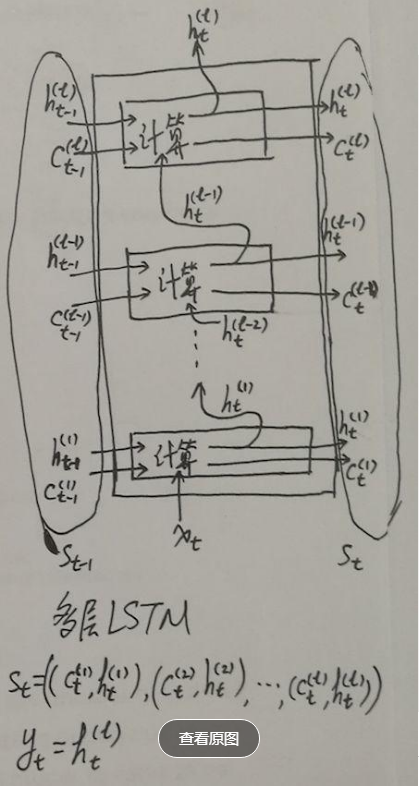 h_t^(l)
h_{t-1}^(l) h_t^(l)
计算
C_{t-1}^(l) C_t^(l)
h_t^(l-1)
h_{t-1}^(l-1) h_t^(l-1)
计算
C_{t-1}^(l-1) C_t^(l-1)
h_t^(l-2)
h_t^(1)
h_{t-1}^(1) h_t^(1)
计算
C_{t-1}^(1) C_t^(1)
x_t
S_{t-1} S_t
多层LSTM
S_t=((C_t^(1),h_t^(1)),(C_t^(2),h_t^(2)),⋯,(C_t^(l),h_t^(l)))
y_t=h_t^(l)
查看原图